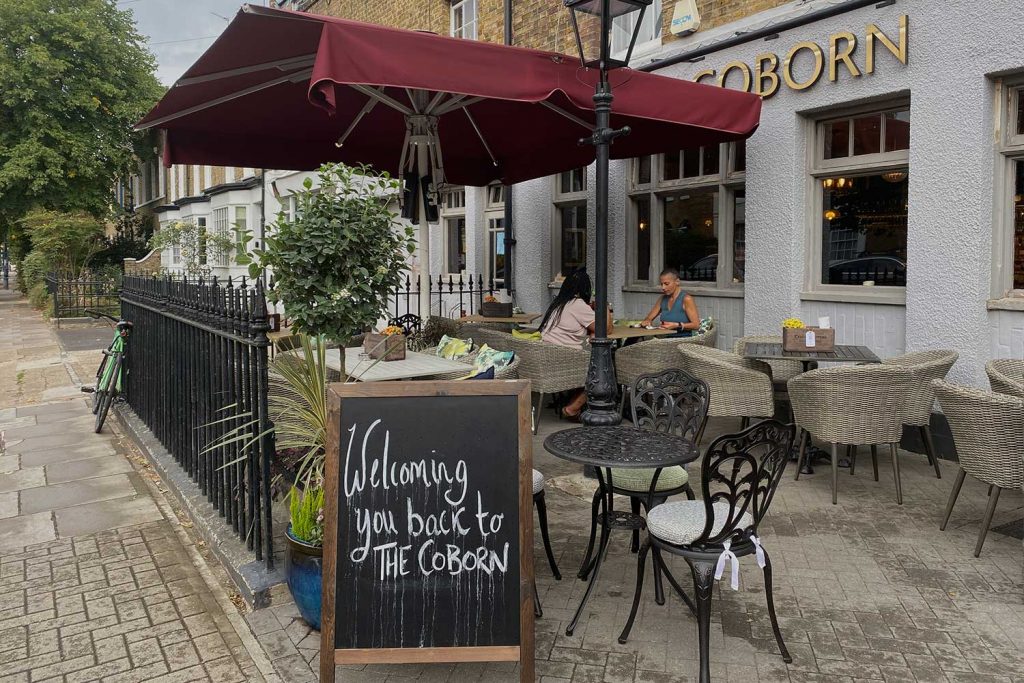 COBORN
Welcoming
you back to
THE COBORN